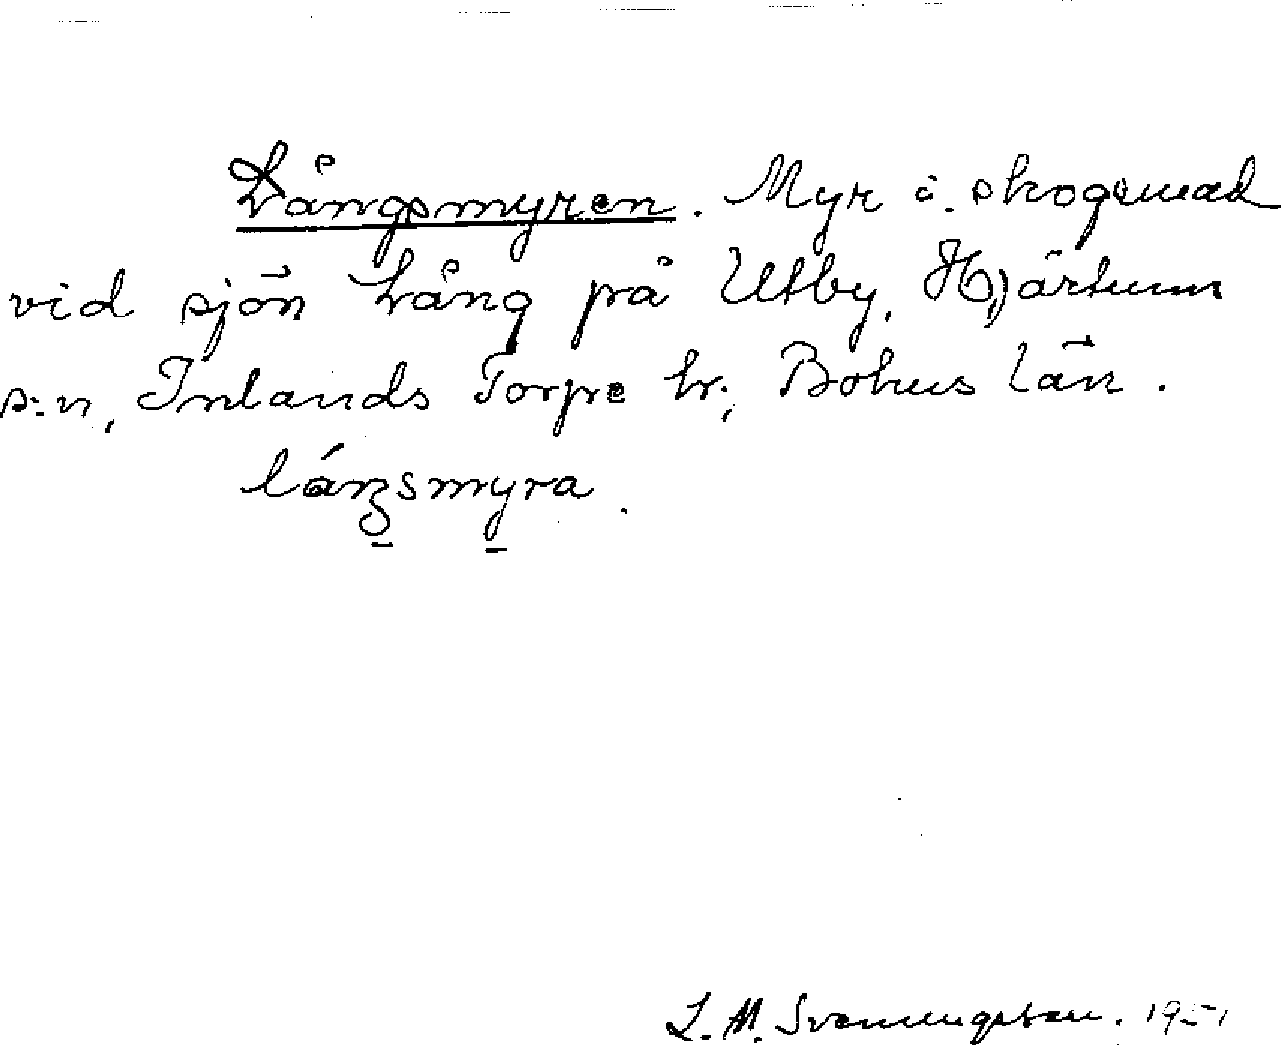 Långsmyren. Myr i skogsmad
vid sjön Lång på Utby, Hjärtum
s:n, Inlands Torpe hr, Bohus län.
lán̠gsmy̠ra.
L. M. Svenungsson. 1951